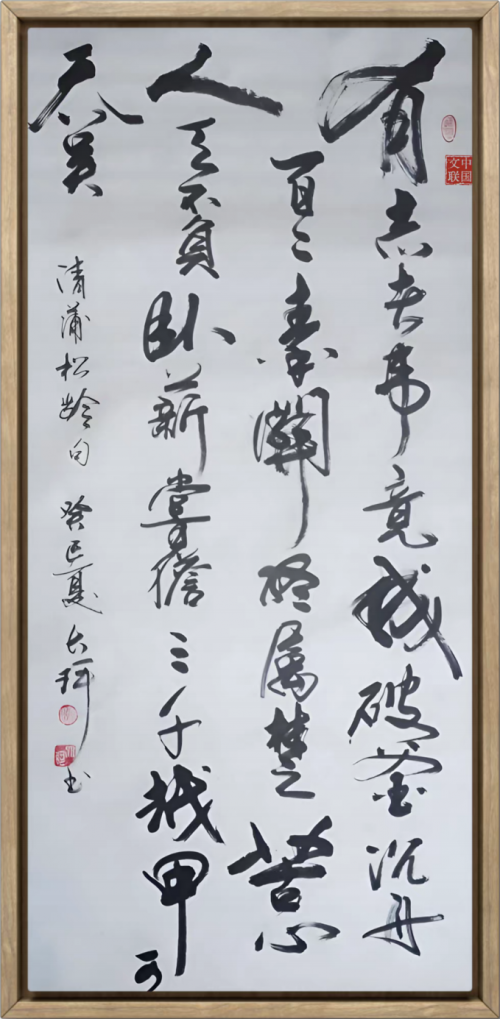 有志者事竟成破釜沉舟
百二秦關終屬楚苦心
人天不負卧薪嘗膽三千越甲可
吞吴
清蒲松齡句 癸巳夏 书
中国文联